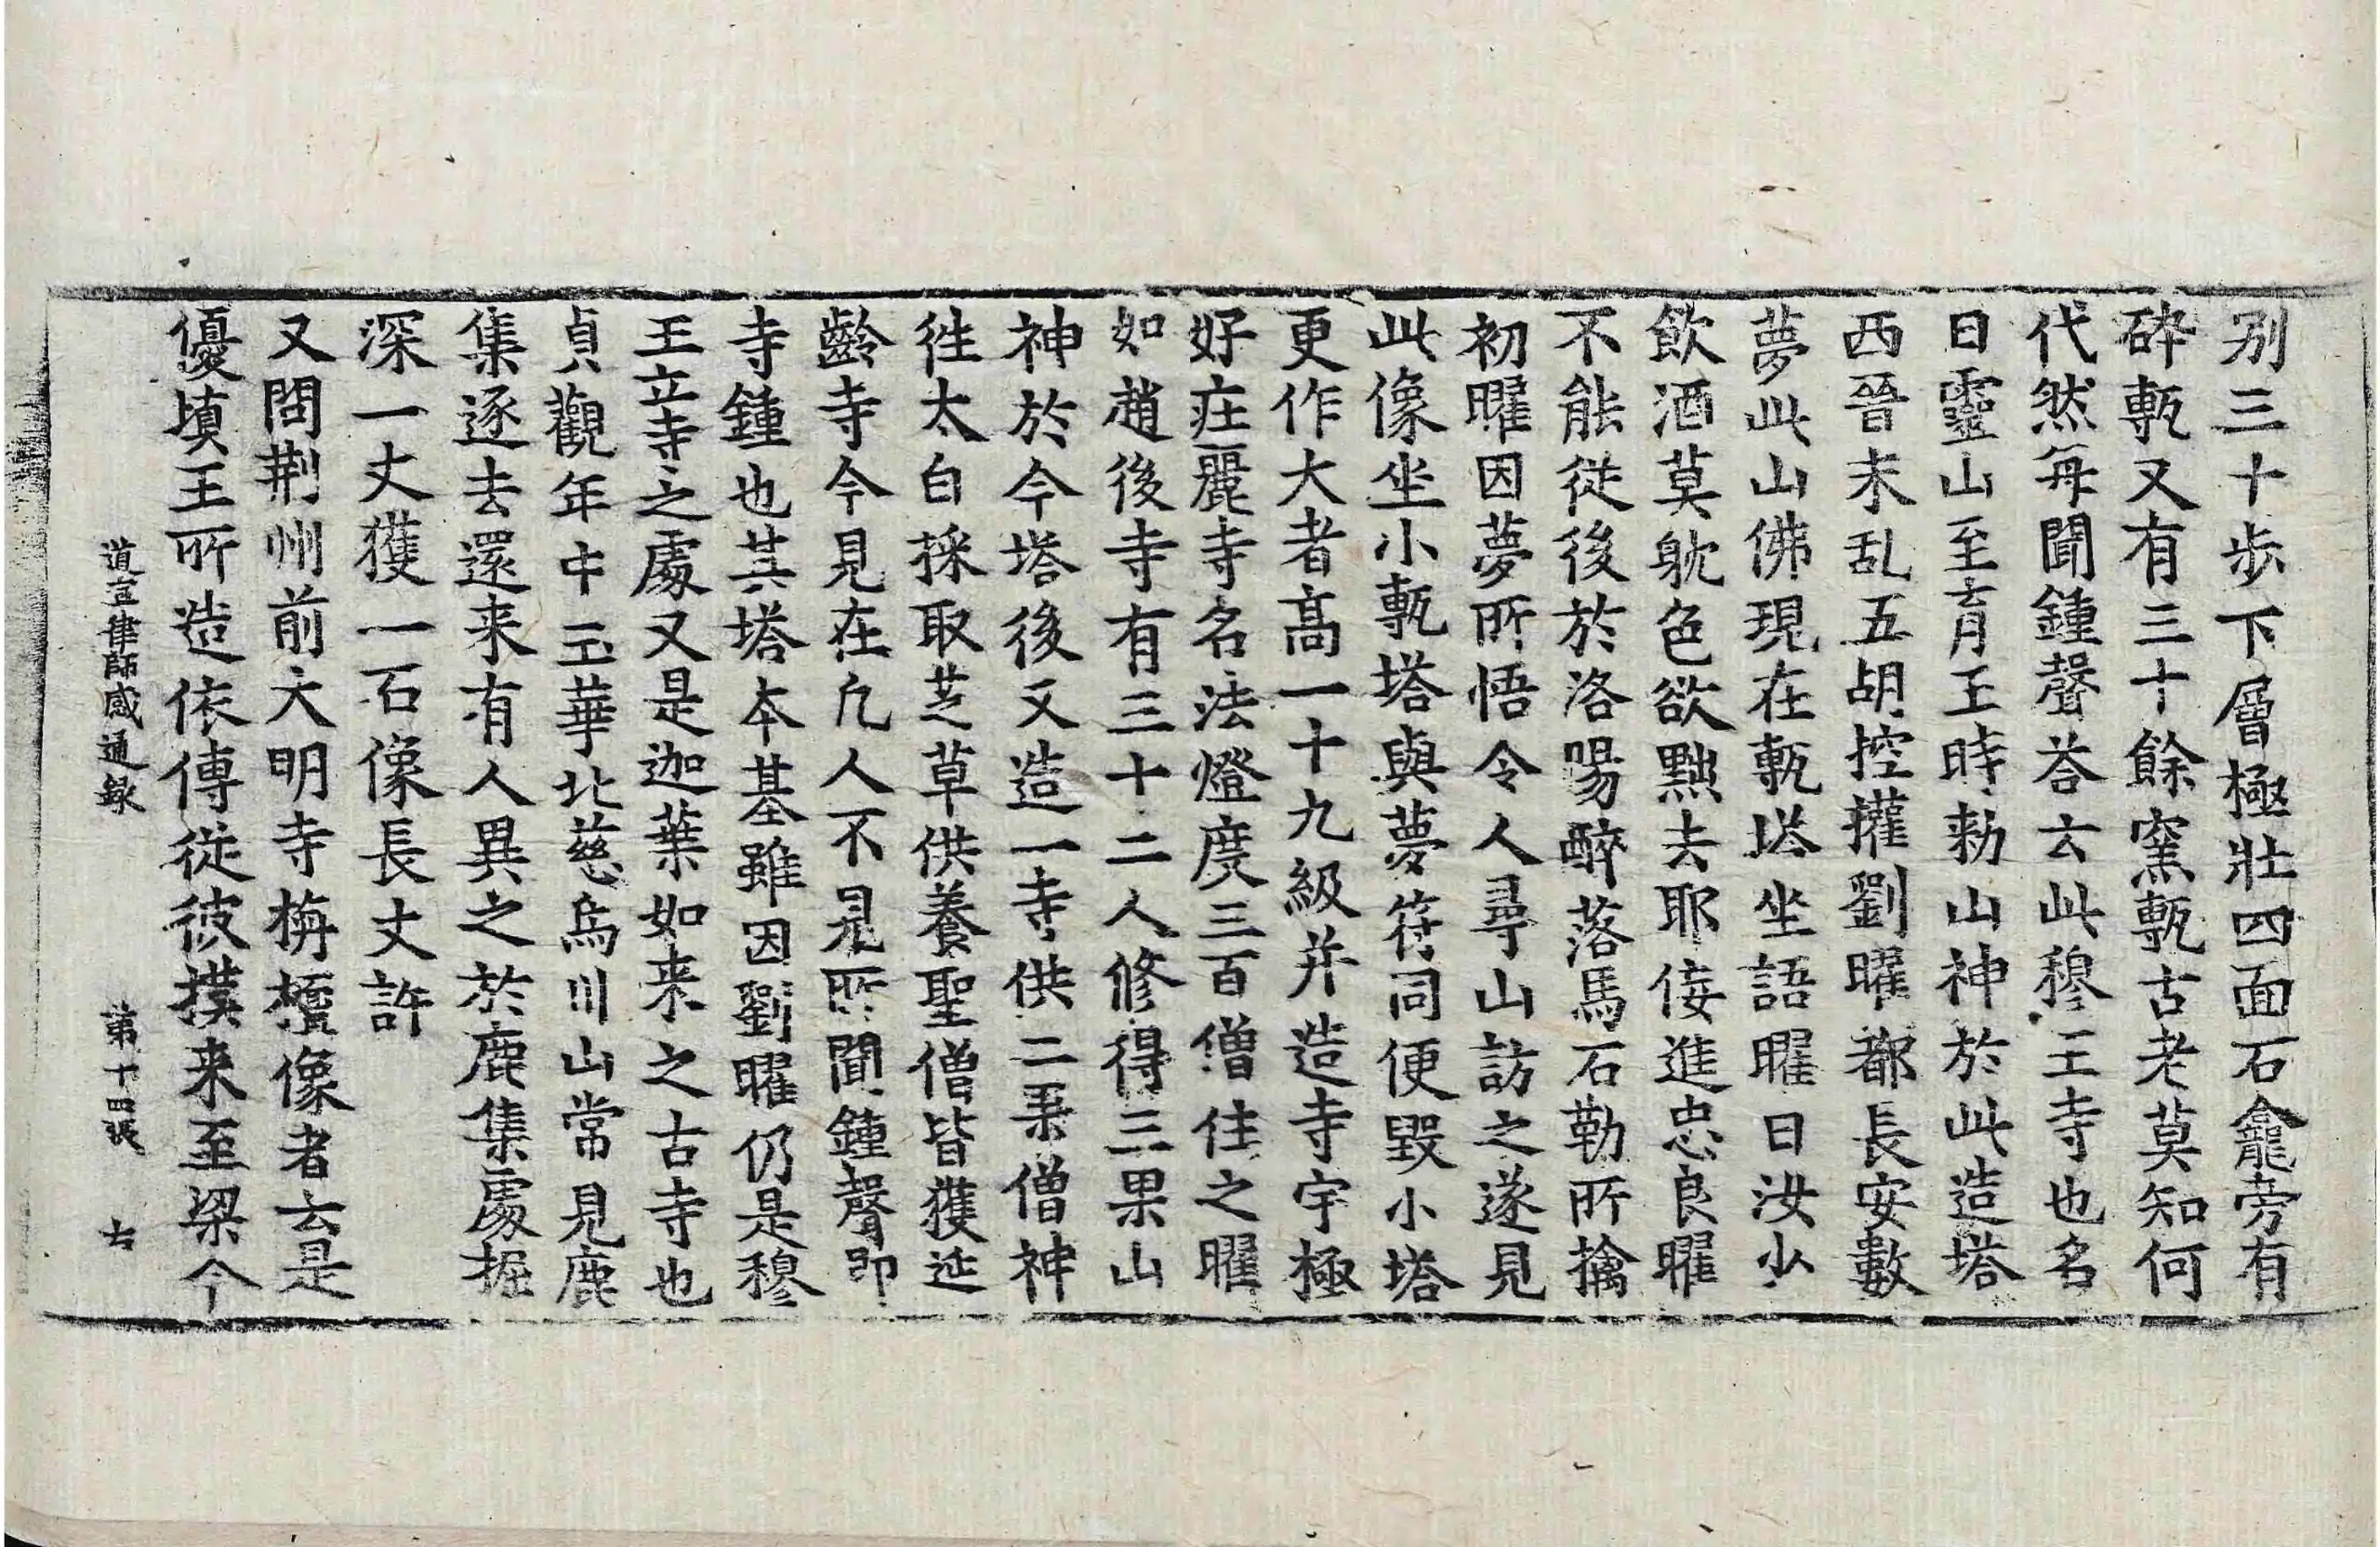 别三十步下層極壯四面石龕旁有
碎甎又有三十餘窯甎古老莫知何
代然每聞鍾聲荅云此穆王寺也名
曰靈山至育王時勑山神於此造塔
西晉末乱五胡控㩲劉曜都長安數
夢此山佛現在甎塔坐語曜曰汝少
飲酒莫躭色欲黜去耶佞進忠良曜
不能從後於洛陽醉落馬石勒所擒
初曜因夢所悟令人尋山訪之遂見
此像坐小甎塔與夢符同便毀小塔
更作大者高一十九級并造寺宇極
好在麗寺名法燈度三百僧住之曜
如趙後寺有三十二人修得三果山
神於今塔後又造一寺供二果僧神
往太白採取芝草供養聖僧皆獲延
齡寺今見在凡人不見所聞鍾聲即
寺鍾也其塔本基雖因劉曜仍是穆
王立寺之處又是迦葉如来之古寺也
貞觀年中玉華北慈烏川山常見鹿
集逐去還来有人異之於鹿集處掘
深一丈獲一石像長丈許
又問荆州前大明寺栴檀像者云是
優填王所造依傳從彼摸来至梁今
道宣律師感通録　第十四張　右